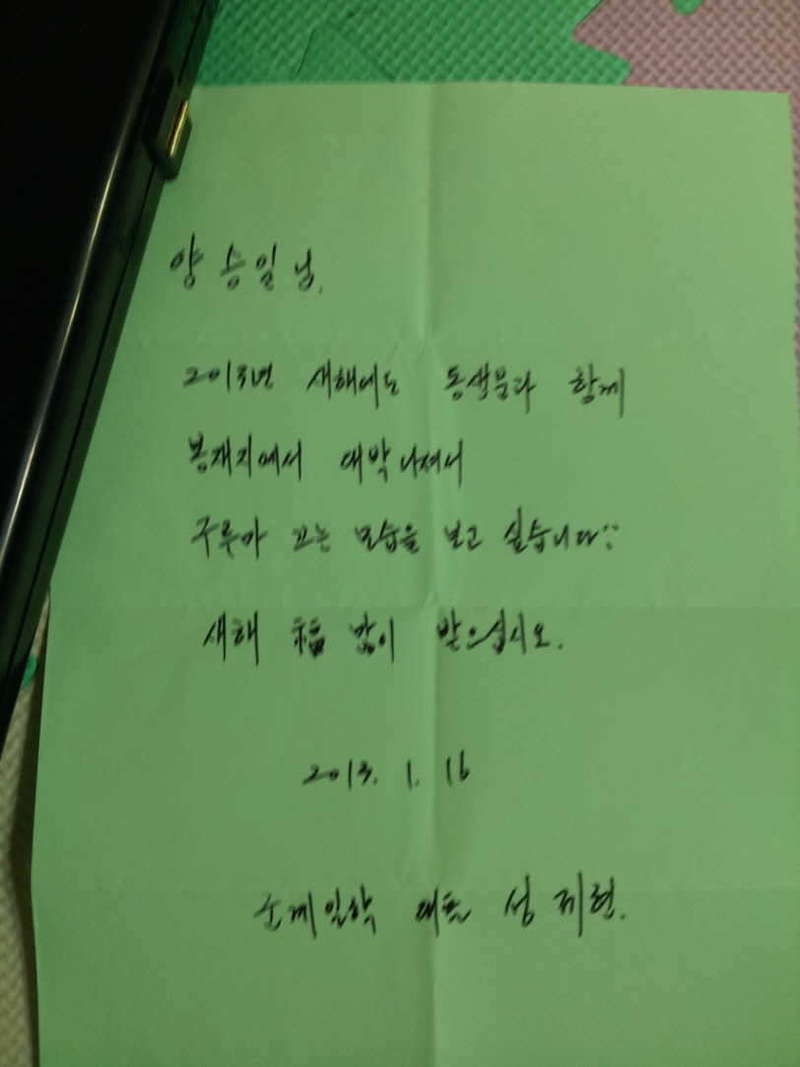 양승일님.
2013년 새해에도 동생분과 함께
봉재지에서 대박나셔서
구루마 끄는 모습을 보고 싶습니다^^
새해 福 많이 받으십시오.
2013. 1. 16
대표 성제현.